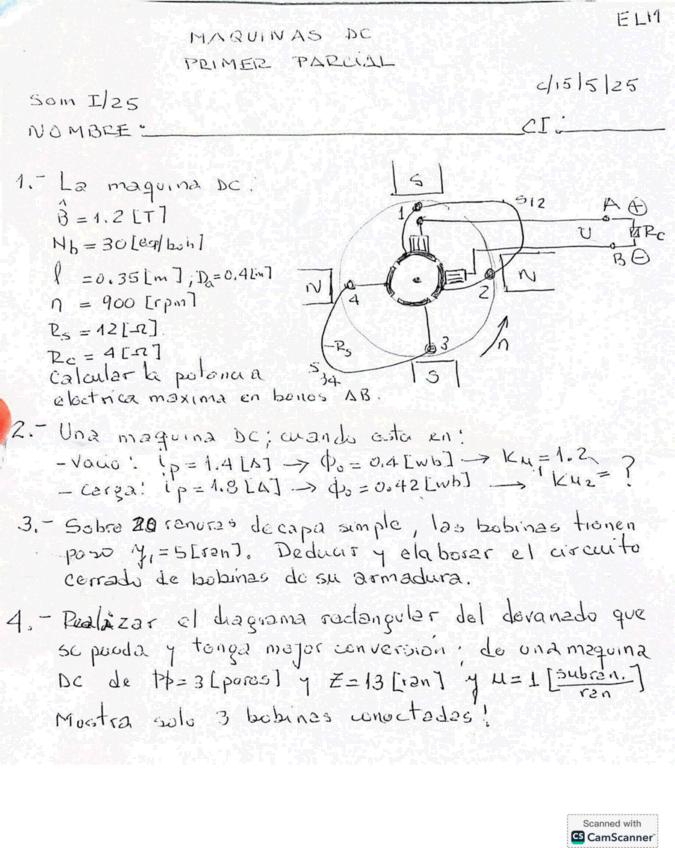 ELM
MAQUINAS DC
PRIMER PARCIAL
c/15/5/25
Sem I/25
NOMBRE: CI:
1.- La maquina DC:
B̂ = 1.2 [T]
Nb = 30 [esp/bob]
l = 0.35 [m]; Da = 0.4 [m]
n = 900 [rpm]
Rs = 12 [Ω]
Rc = 4 [Ω]
Calcular la potencia
electrica maxima en bornes AB.
S
1
S12
A ⊕
U
Rc
B ⊖
N
4
2
N
Rs
3
n
S34
S
2.- Una maquina DC; cuando esta en:
- Vacio: ip = 1.4 [A] → ϕo = 0.4 [wb] → KM1 = 1.2
- Carga: ip = 1.8 [A] → ϕo = 0.42 [wb] → KM2 = ?
3.- Sobre 20 ranuras de capa simple, las bobinas tienen
paso y1 = 5 [ran]. Deducir y elaborar el circuito
cerrado de bobinas de su armadura.
4.- Realizar el diagrama rectangular del devanado que
se pueda y tenga mejor conversión; de una maquina
DC de PP = 3 [pares] y Z = 13 [ran] y μ = 1 [subran./ran]
Mostra solo 3 bobinas conectadas!
Scanned with
CS CamScanner